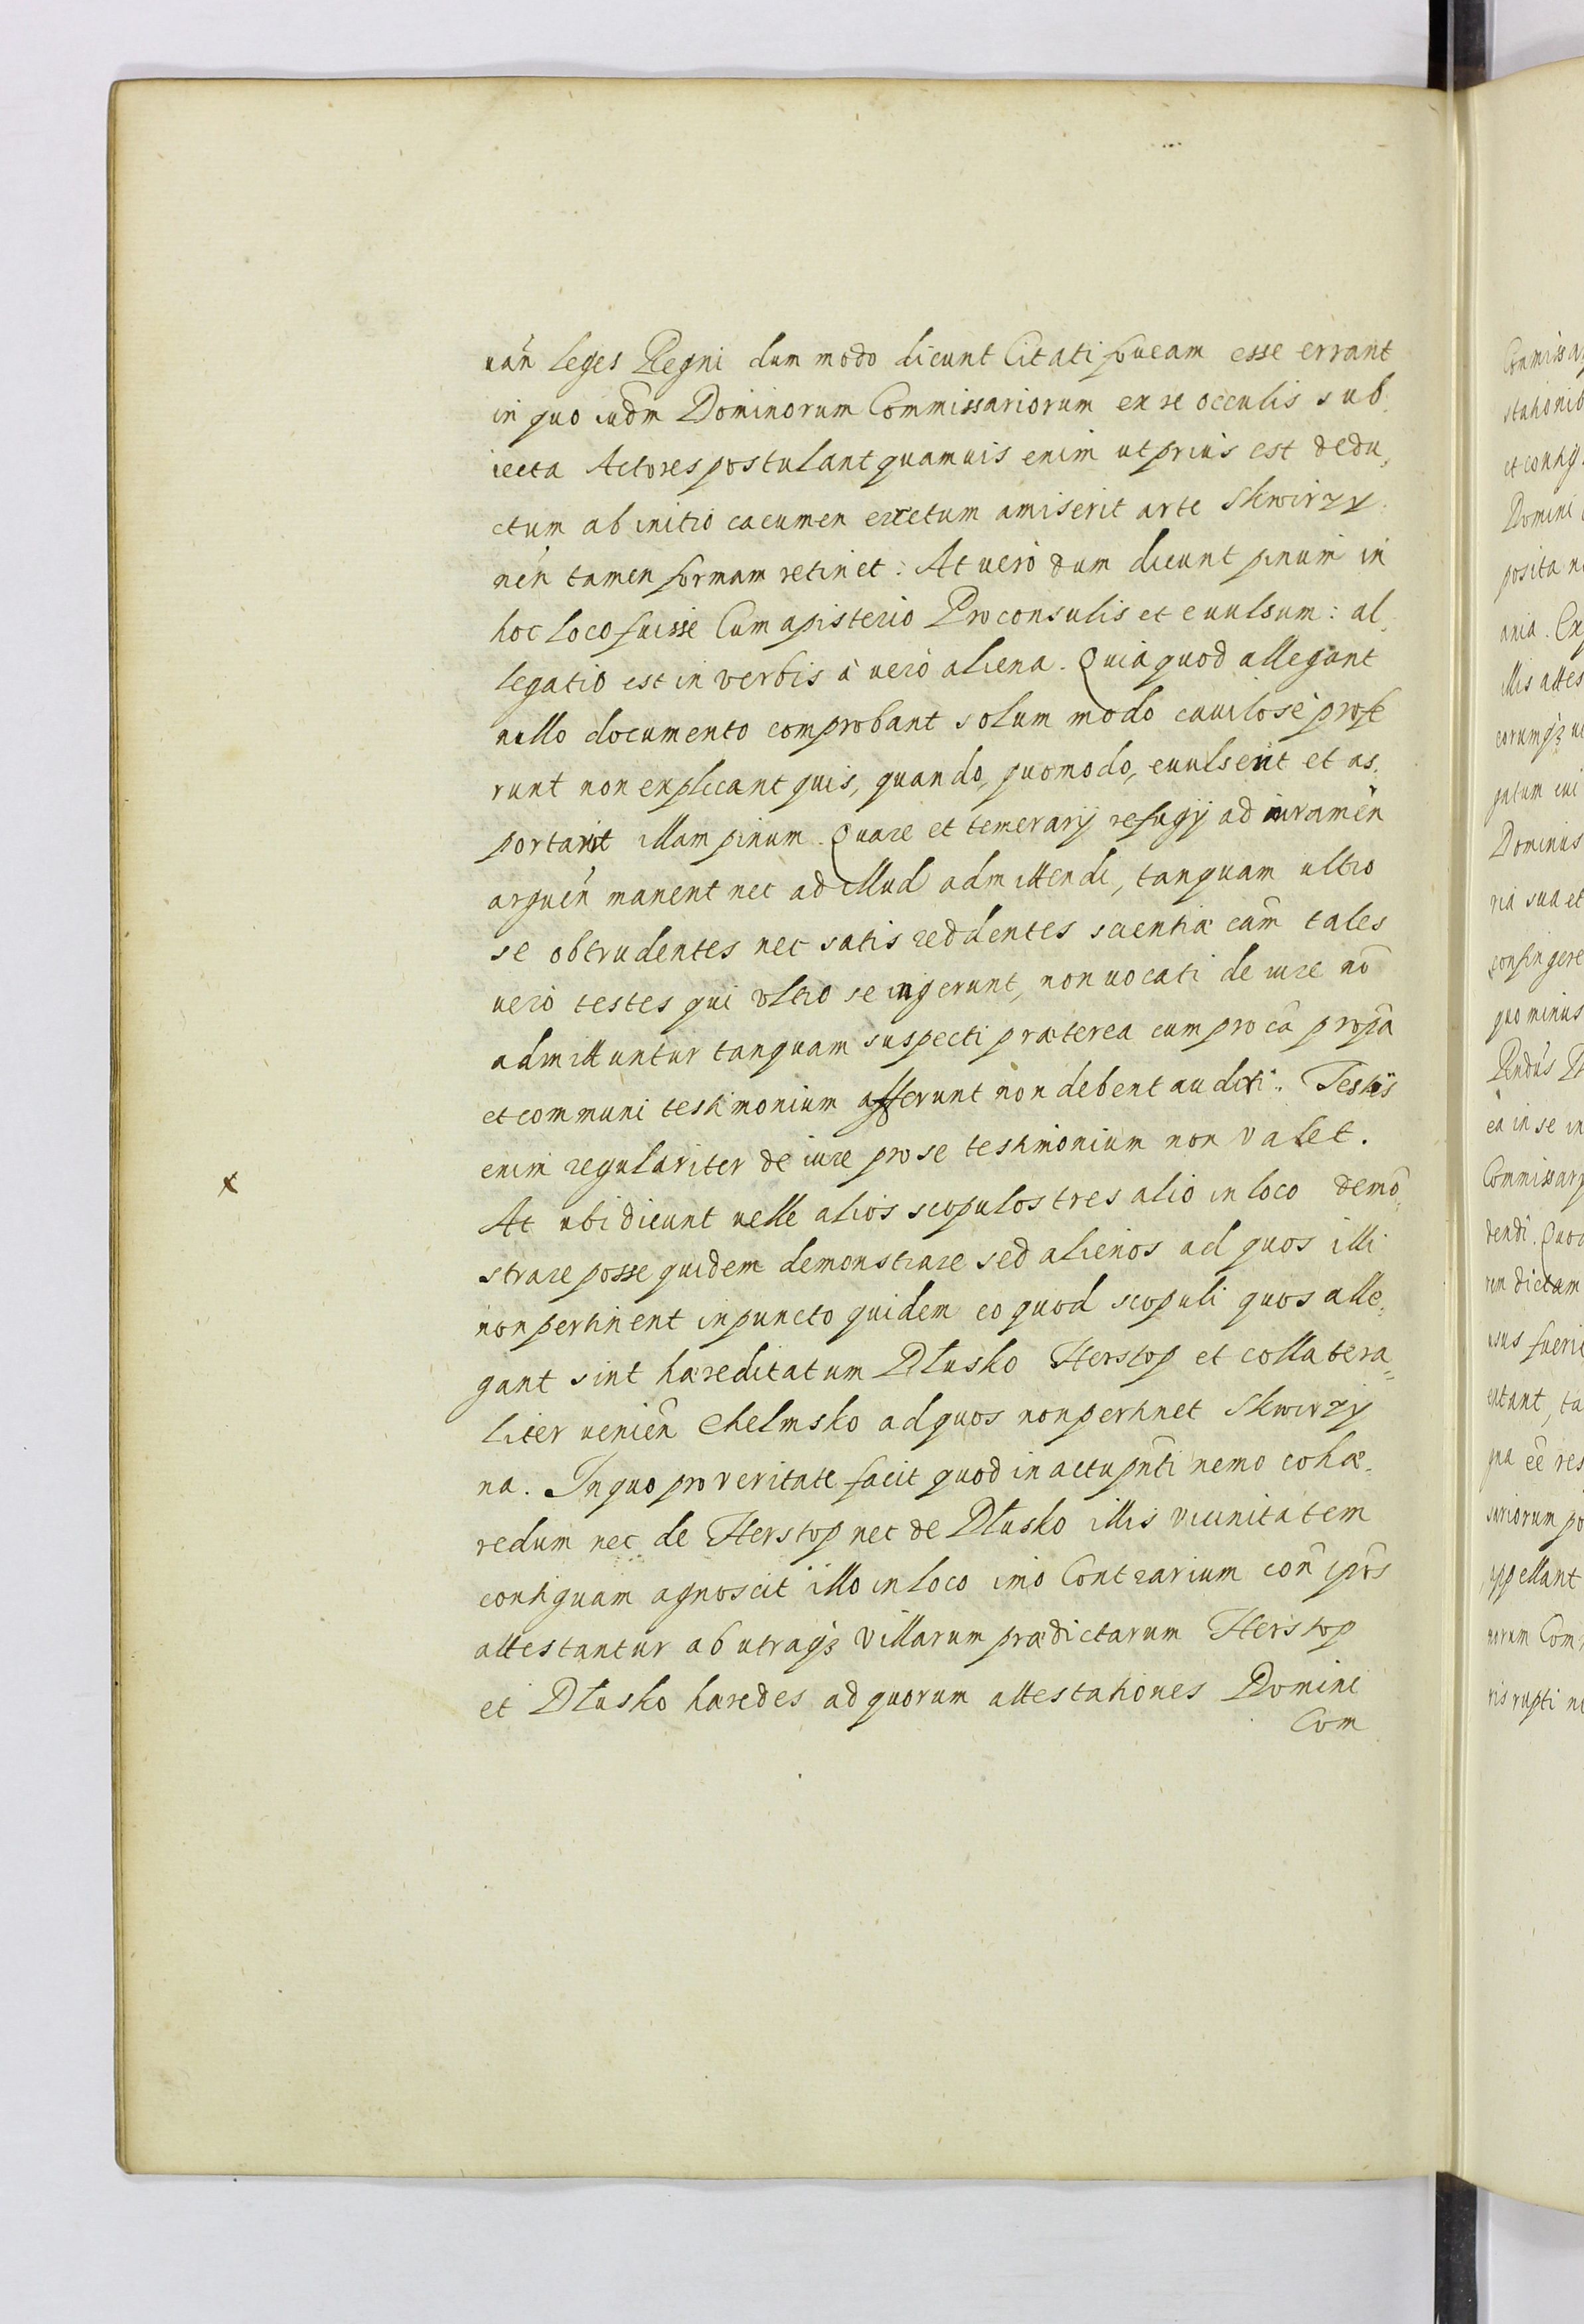 uań leges Regni dum modo dicunt Citati foueam esse errant
in quo iudm̃ Dominorum Commissariorum ex re occulis sub,
iecta Actores postulant quamuis enim ut prius est dedu,
ctum ab initio cacumen erectum amiserit arte Skwirzy
nen tamen formam retinet: At uero dum dicunt pinum in
hoc loco fuisse Cum apisterio Proconsulis et euulsum: al,
legatio est in verbis à uero aliena. Quia quod allegant
nullo documento comprobant solum modo cauilose profe
runt non explicant quis, quando, quomodo, euulserit et as,
portarit illam pinum. Quare et temerarij refugij ad iuramen̄
arguen̄ manent nec ad illud admittendi, tanquam ultro
se obtrudentes nec satis reddentes scientiæ cam̃ tales
uero testes qui vltro se ingerunt, non uocati de iure nõ
admittuntur tanquam suspecti præterea cum pro cã propã
et communi testimonium afferunt non debent audiri. Testis
enim regulariter de iure pro se testimonium non valet.
At ubi dicunt uelle alios scopulos tres alio in loco demõ,
strare posse quidem demonstrare sed alienos ad quos illi
non pertinent in puncto quidem eo quod scopuli quos alle,
gant sint hæreditatum Dłusko Herstop et collatera=
liter uenien̄ Chelmsko ad quos non pertinet Skwirzy
na. In quo pro veritate facit quod in actu pñti nemo cohæ,
redum nec de Herstop nec de Dłusko illis vicinitatem
contiguam agnoscit illo in loco imo Contrarium coñ ipõs
attestantur ab utraqꝫ villarum prædictarum Herstop
et Dłusko hæredes ad quorum attestationes Domini
Com
x